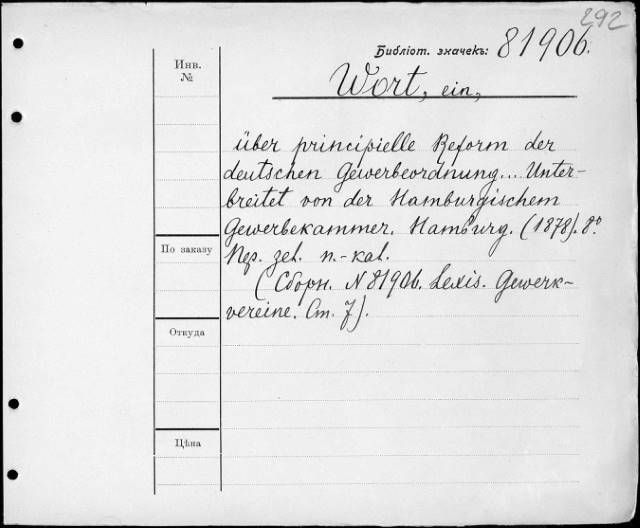 292
Библіот. значекъ: 81906.
Инв.
№
Wort, ein,
über principielle Reform der
deutschen Gewerbeordnung... Unter-
breitet von der Hamburgischem
Gewerbekammer. Hamburg. (1878). 8°.
По заказу
Пер. zet. n.-kat.
(Сборн. N 81906. Lexis. Gewerk-
vereine. Ст. 7).
Откуда
Цѣна